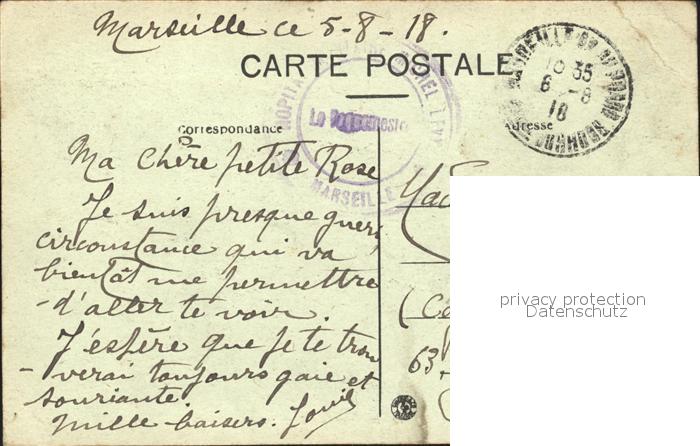 Marseille ce 5-8-18.
CARTE POSTALE
HOPITAL
MARSEILLE
Correspondance
Adresse
18 35
6 - 8
18
Ma Chère petite Rose
Je suis presque gueri
circonstance qui va
bientât me permettre
-d'aller te voir.
J'espère que je te trou
-verai toujours gaie et
souriante.
Mille baisers.
63
privacy protection
Datenschutz